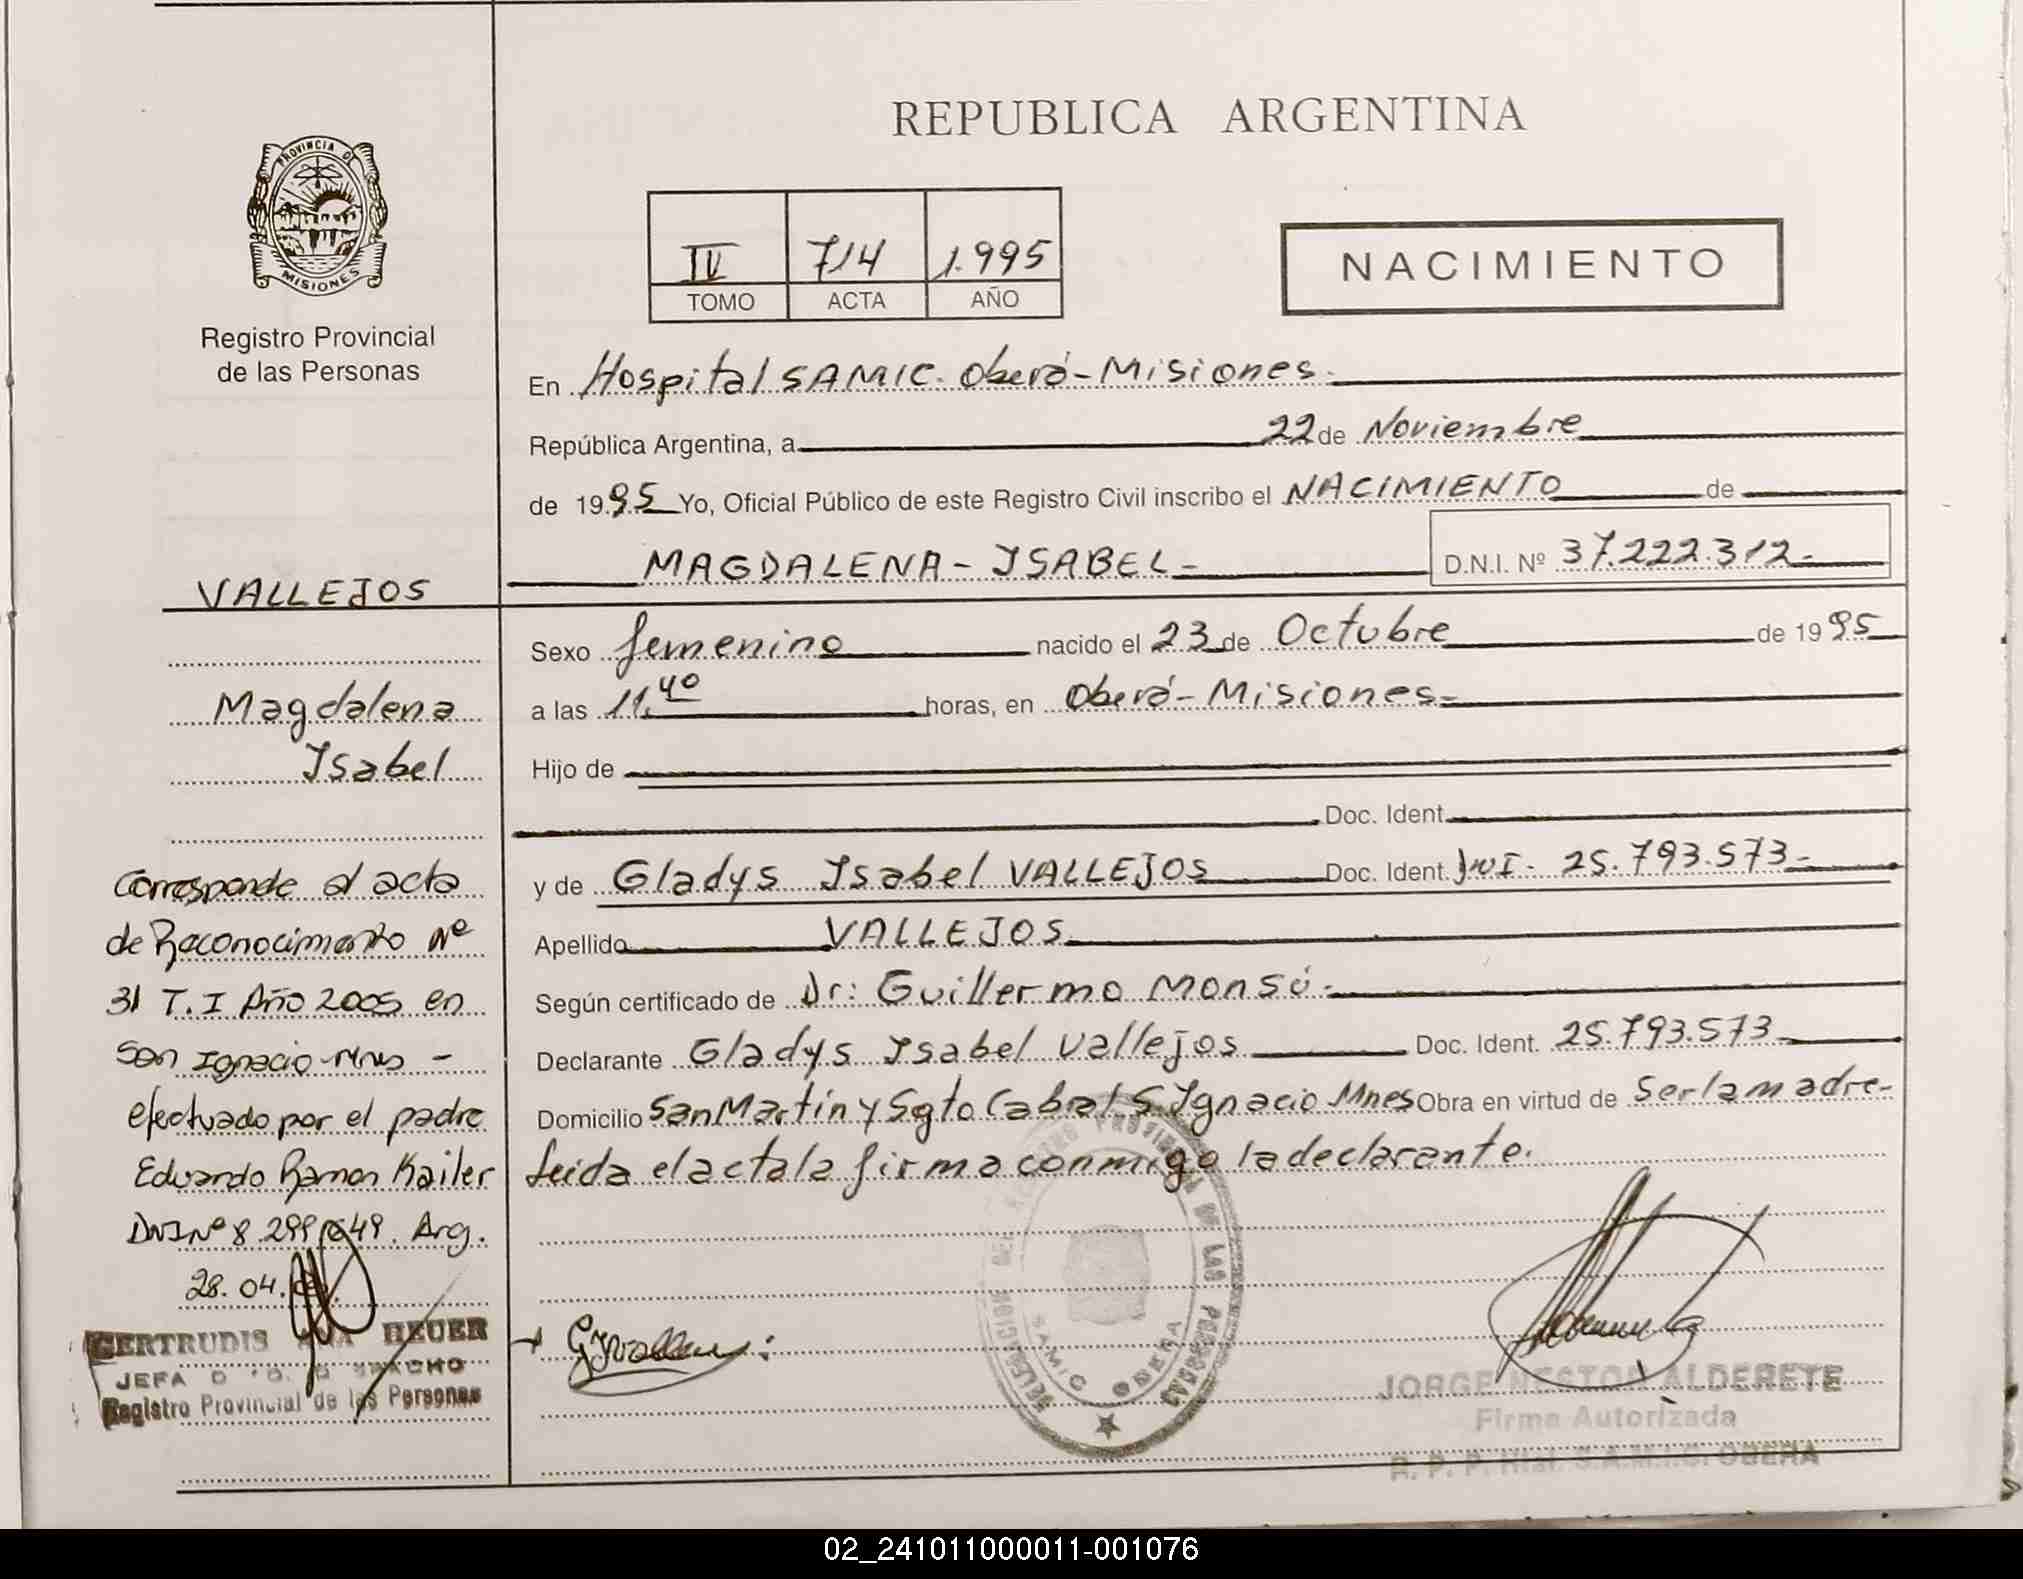 REPUBLICA ARGENTINA
PROVINCIA DE
MISIONES
Registro Provincial
de las Personas
IV 714 1.995
TOMO ACTA AÑO
NACIMIENTO
En Hospital SAMIC. Oberá-Misiones.
República Argentina, a 22 de Noviembre
de 1995 Yo, Oficial Público de este Registro Civil inscribo el NACIMIENTO de
MAGDALENA-ISABEL- D.N.I. Nº 37.222.312-
VALLEJOS
Magdalena
Isabel
Corresponde al acta
de Reconocimiento Nº
31 T.I Año 2005 en
San Ignacio-Mns -
efectuado por el padre
Eduardo Ramon Kailer
DNI Nº 8.299.649. Arg.
28.04.
GERTRUDIS HEUER
JEFA
Registro Provincial de las Personas
Sexo femenino nacido el 23 de Octubre de 1995
a las 11,40 horas, en Oberá-Misiones-
Hijo de
Doc. Ident.
y de Gladys Isabel VALLEJOS Doc. Ident. 25.793.573-
Apellido VALLEJOS
Según certificado de Dr: Guillermo Monsó-
Declarante Gladys Isabel Vallejos Doc. Ident. 25.793.573
Domicilio San Martin y Sgto Cabral S. Ignacio Mnes Obra en virtud de ser la madre-
Leida el acta la firma conmigo la declarante.
DELEGACION DEL REGISTRO PROVINCIAL DE LAS PERSONAS
SAMIC OBERA
JORGE NESTOR ALDERETE
Firma Autorizada
R. P. P. Htal. S.A.M.I.C. OBERA
02_241011000011-001076